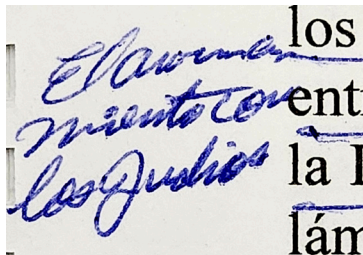 El
miento con
los Judios
los
ent
la
lám